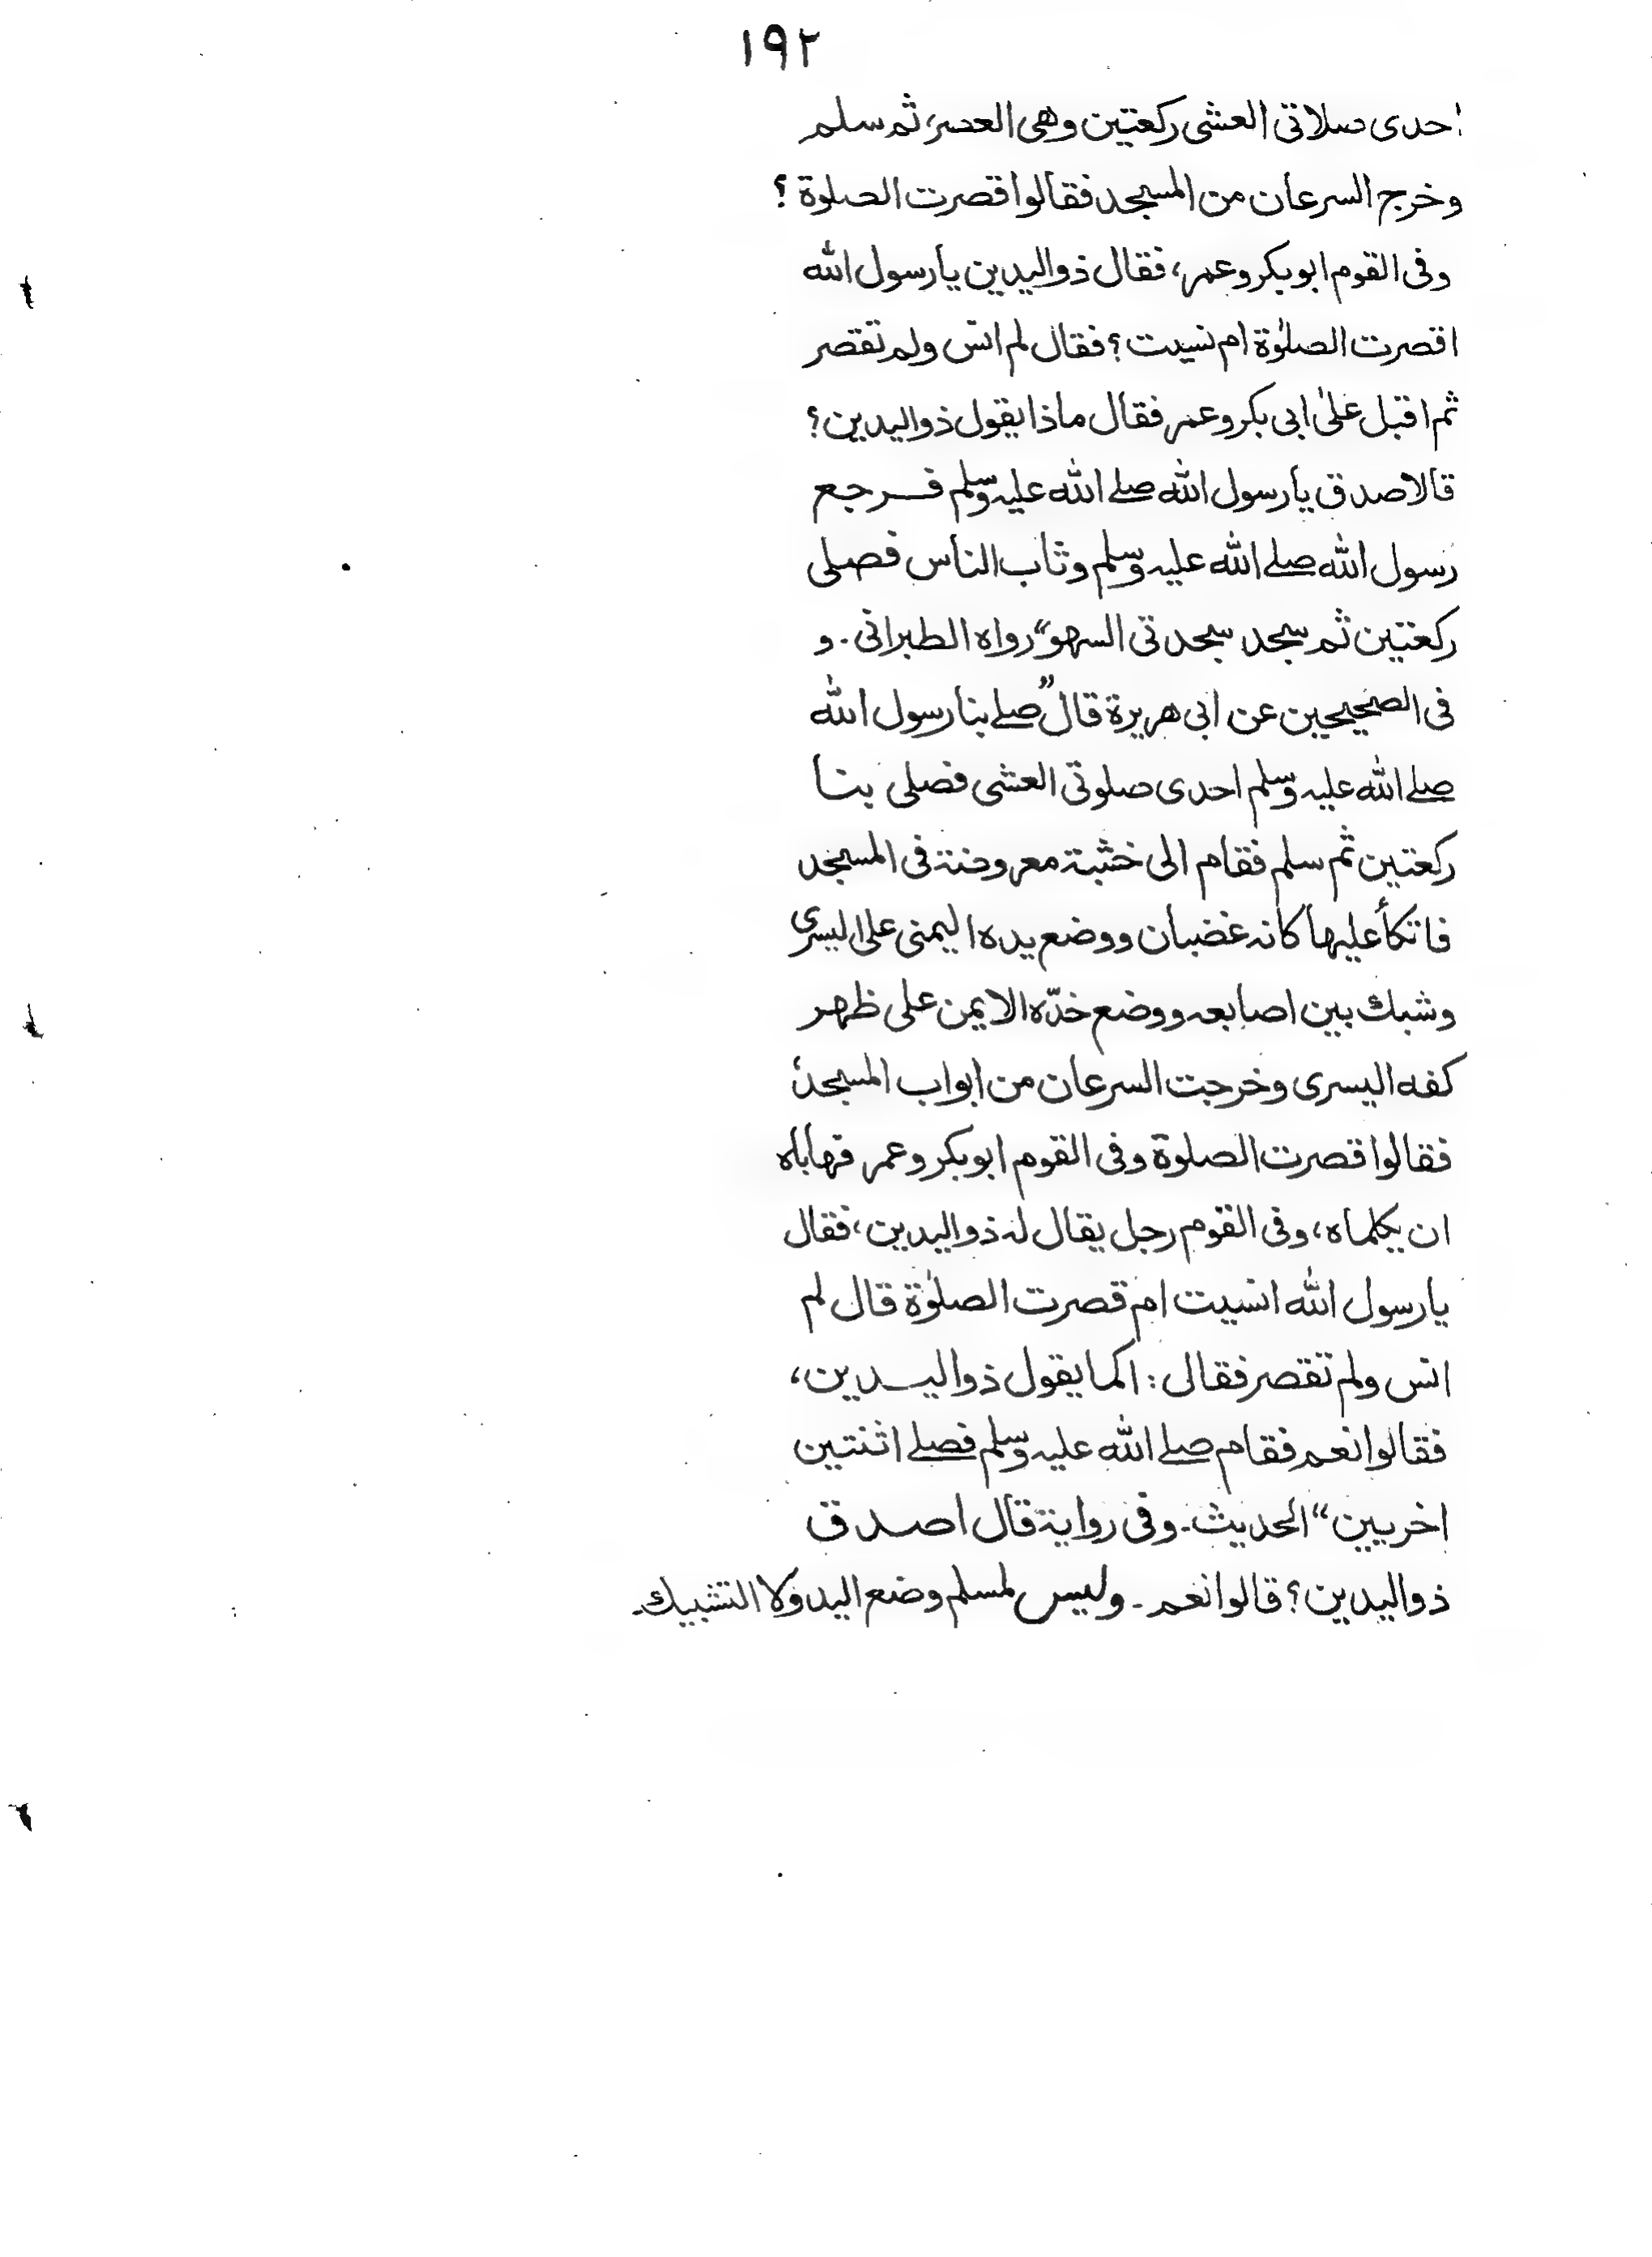 ١٩٢
احدى صلاتی العشی رکعتین وهی العصر، ثم سلم
وخرج السرعان من المسجد فقالوا قصرت الصلوة ؟
وفی القوم ابوبکر وعمر، فقال ذوالیدین یارسول الله
اقصرت الصلوٰة ام نسیت؟ فقال لم انس ولم تقصر
ثم اقبل علیٰ ابی بکر وعمر فقال ماذا یقول ذوالیدین؟
قالا صدق یارسول الله صلے الله علیہ وسلم فرجع
رسول الله صلے الله علیہ وسلم وثاب الناس فصلی
رکعتین ثم سجد سجدتی السهو“ رواه الطبرانی۔ و
فی الصحیحین عن ابی هریرة قال ”صلے بنا رسول الله
صلے الله علیہ وسلم احدی صلوتی العشی فصلی بنا
رکعتین ثم سلم فقام الی خشبة معروضة فی المسجد
فاتکأ علیها کانہ غضبان ووضع یده الیمنی علی الیسری
وشبك بین اصابعہ ووضع خدّه الایمن علی ظهر
کفه الیسری وخرجت السرعان من ابواب المسجد،
فقالوا قصرت الصلوة وفی القوم ابوبکر وعمر فهاباه
ان یکلماه، وفی القوم رجل یقال لہ ذوالیدین، فقال
یارسول الله انسیت ام قصرت الصلوٰة قال لم
انس ولم تقصر فقال: اکما یقول ذوالیدین،
فقالوا نعم فقام صلے الله علیہ وسلم فصلے اثنتین
اخریین“ الحدیث۔ وفی روایة قال اصدق
ذوالیدین؟ قالوا نعم۔ ولیس لمسلم وضع الید ولا التشبیك۔